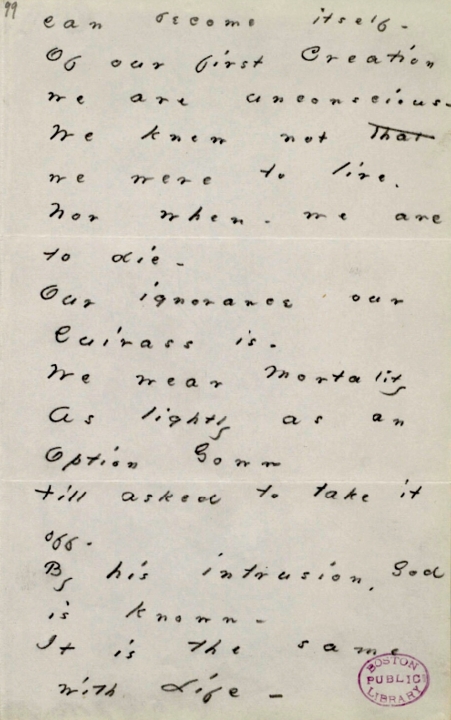 99
can become itself -
Of our first Creation
we are unconscious -
We knew not That
we were to live.
Nor when - we are
to die -
Our ignorance our
Cuirass is -
We wear Mortality
As lightly as an
Option Gown
till asked to take it
off -
By his intrusion, God
is known -
It is the same
with Life -
BOSTON
PUBLIC
LIBRARY